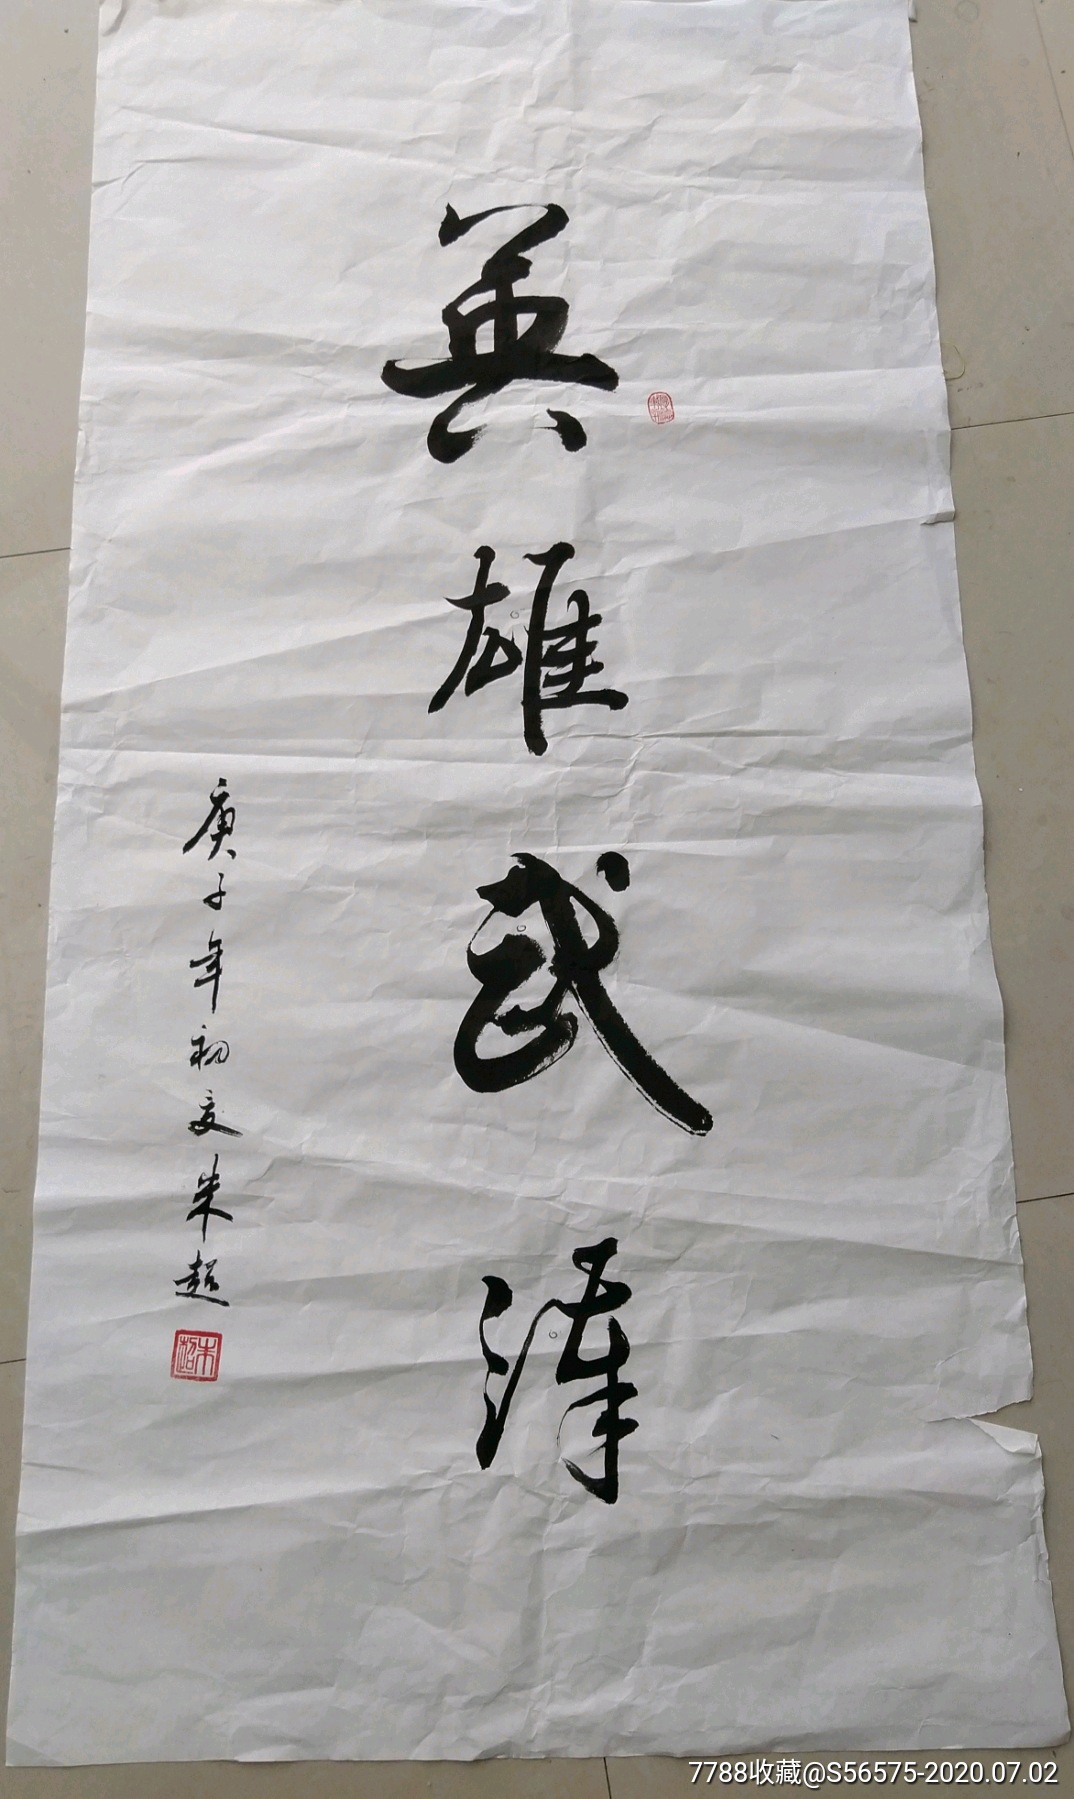 英雄武漢
庚子年初夏朱超
朱超
7788收藏@S56575-2020.07.02